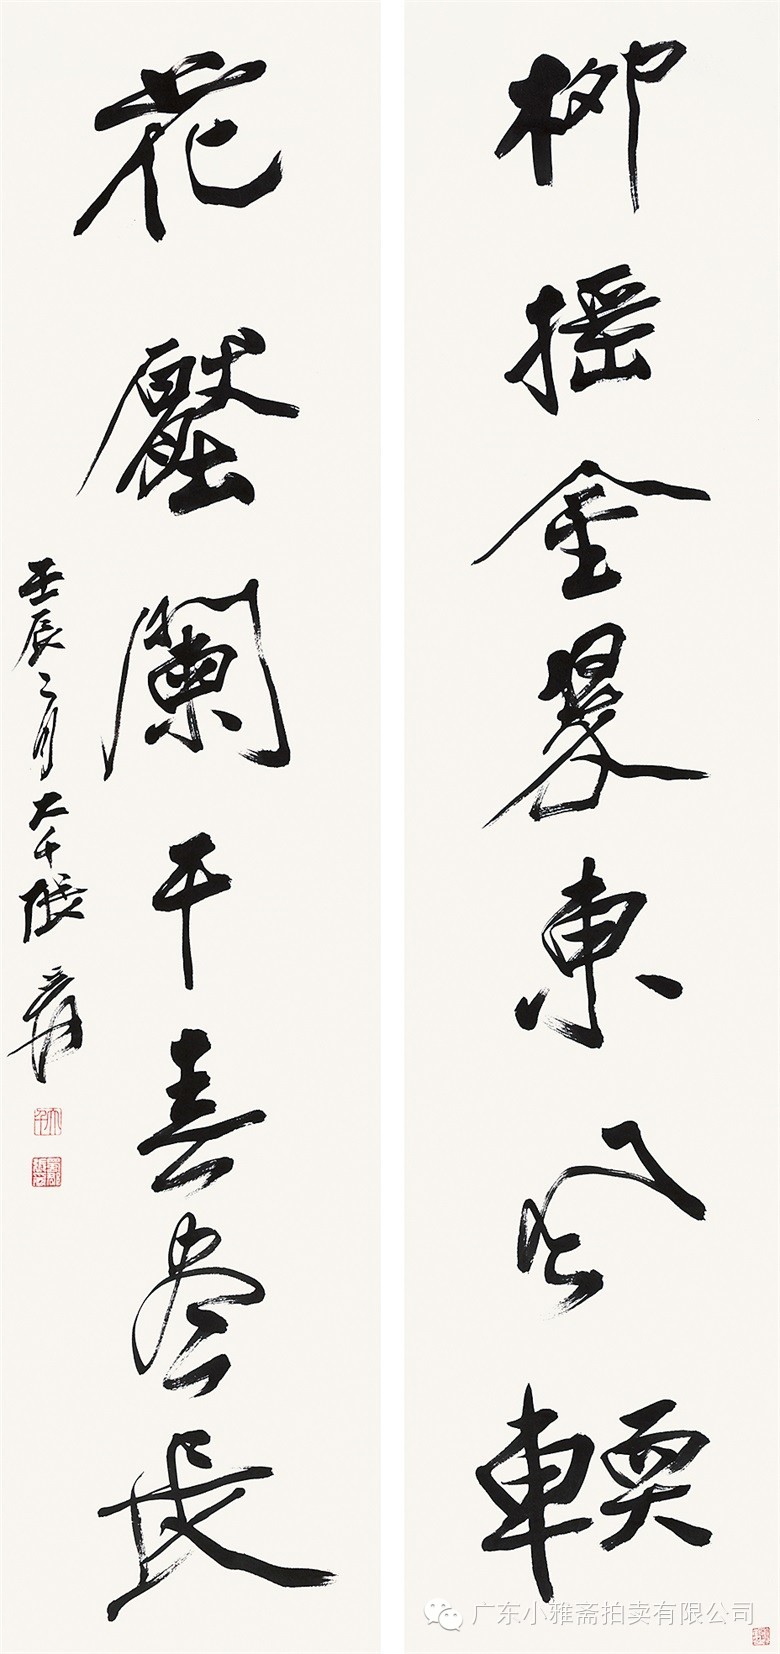 柳摇金東風輭
花壓闌干春晝長
壬辰二月大千張爰
大千
广东小雅斋拍卖有限公司